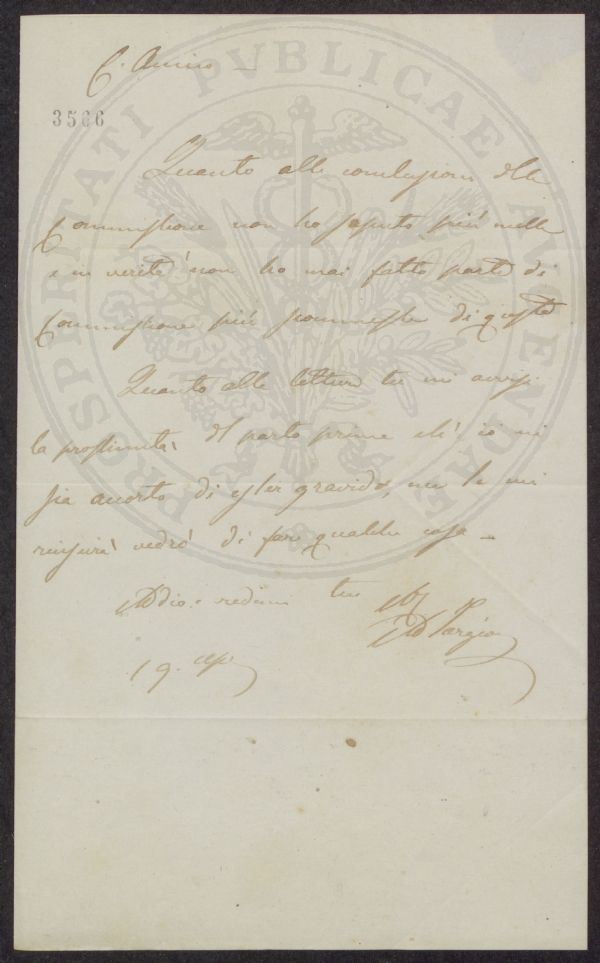 C. Amico
3566
Quanto alle conclusioni della
Commissione non ho saputo più nulla
e in verità non ho mai fatto parte di
Commissione più sconnessa di questa
Quanto alla lettura tu mi avvisi
la prossimità del parto prima ch'io mi
sia accorto di esser gravido, ma se mi
riuscirà vedrò di far qualche cosa
Addio e credimi tuo
19.
PROSPERITATI PVBLICAE AVGENDAE